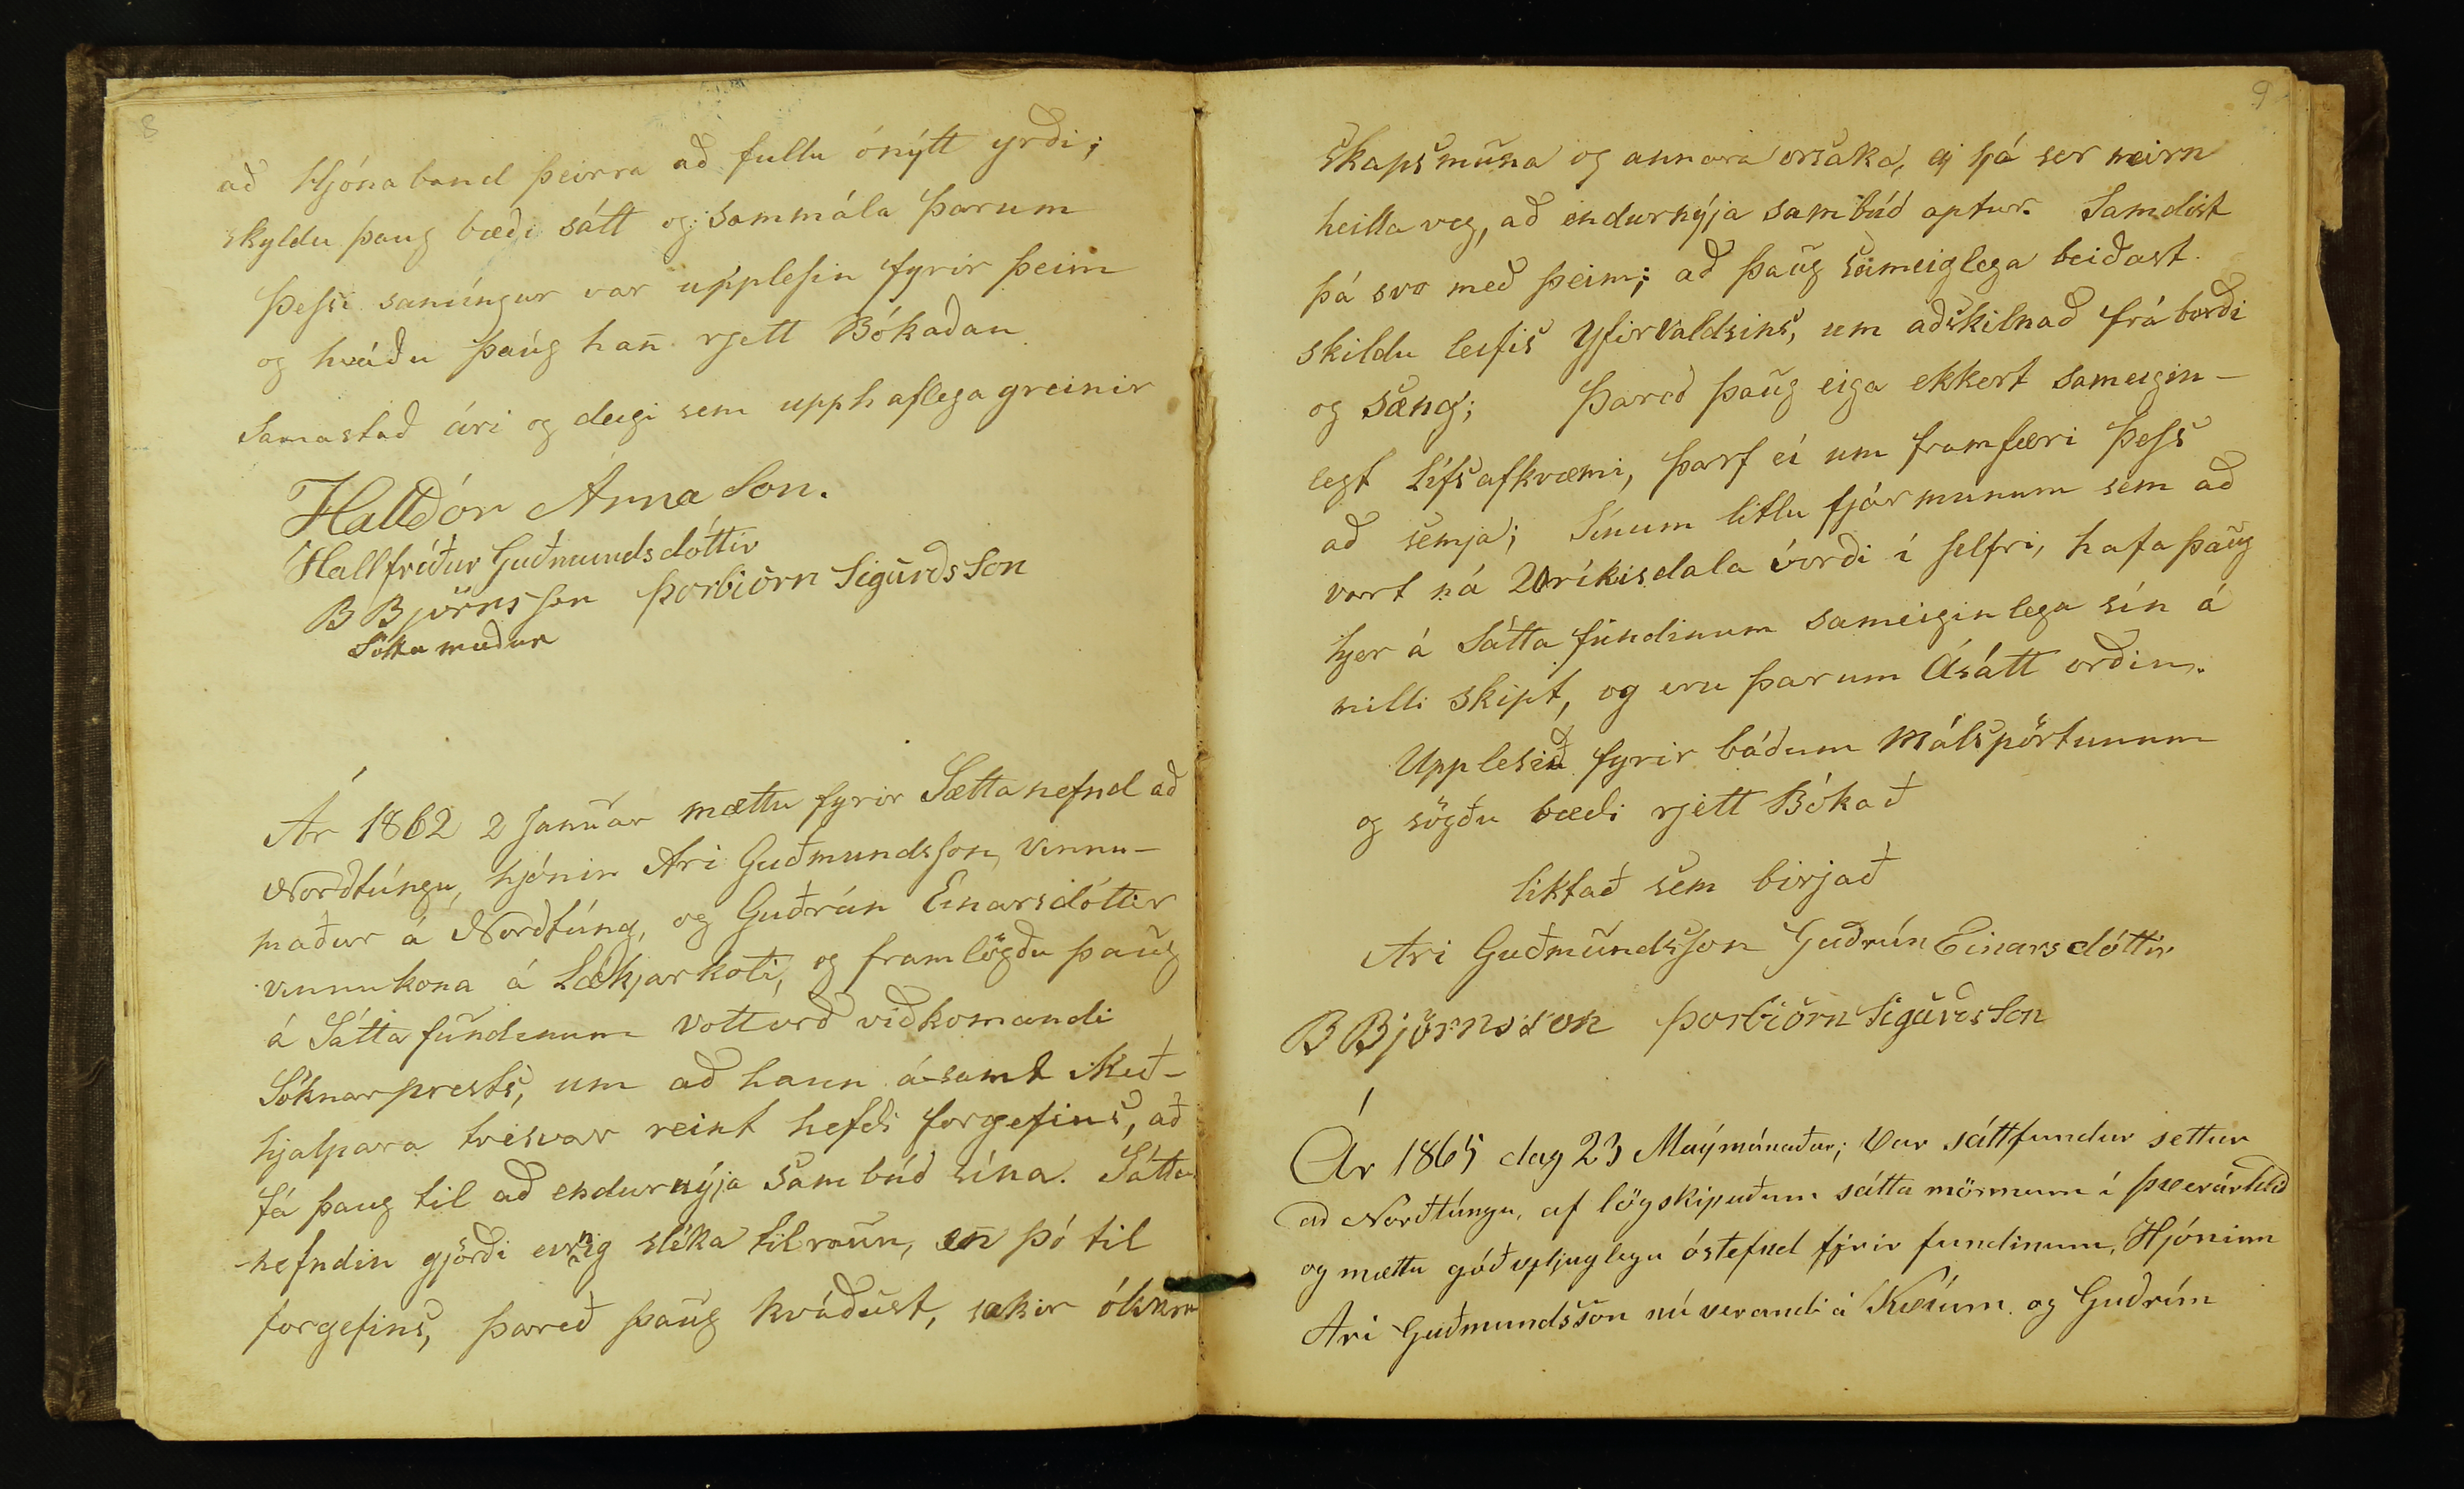 8
að Hjónaband þeirra að fullu ónýtt yrði;
skyldu þaug bæði sátt og sammála þarum
Þessi samíngur var upplesin fyrir þeim
og kváðu þaúg han̄ rjett Bókaðan
Samastað ári og degi sem upphaflega greinir
Halldór Árnason.
Hallfríður Guðmundsdóttir
B Björnsson Þorbiörn Sigurðsson
Sátta maður
Ár 1862 2 Januar mættu fyrir Sættanefnd að
Norðtúngu, hjónin Ari Guðmundsson, vinnu-
maður á Norðtúng, og Guðrún Einarsdóttir
vinnukona á Lækjarkoti, og framlögðu þaug
á Sáttafundinum vottorð viðkomandi
Sóknarprests, um að hann ásamt Með-
hjalpara tvisvar reint hefði forgefins, að
fá þaug til að endurnýja Sambúð sína. Sátta
nefndin gjörði einnig slíka tilraun, en̄ þó til
forgefins, þareð þaug kváðust, sakir ólíkra
9
Skapsmuna og annara orsaka, ej sjá ser neirn
heilla veg, að endurnýja sambúð aptur. Samdist
þá svo með þeim; að þaug sameiglega beiðast
skildu leifis Yfirvaldsins, um aðskilnað frá borði
og sæng; Þareð þaug eiga ekkert sameigin-
legt Lífsafkvæmi, þarf ei um framfæri þess
að semja; Sínum litlu fjármunum sem að
vart ná 20 ríkisdala virði í selfri, hafa þaug
hjer á Sáttafundinum sameiginlega sín á
milli skipt, og eru þarum Ásátt orðin.
Upplesið fyrir báðum Málspörtunum
og sögðu bæði rjett Bókað
liktað sem birjað
Ari Guðmundsson Guðrún Einarsdóttir
B Björnsson Þorbiörn Sigurðsson
Ár 1865 dag 23 Maýmánaðar; Var sáttfundur settur
að Norðtúngu, af lögskipuðum sátta mönnum í Þverárhlíð
og mættu góðvjljuglega óstefnd fyrir fundinum, Hjóninn
Ari Guðmundsson nú verandi á Kvíum og Guðrún